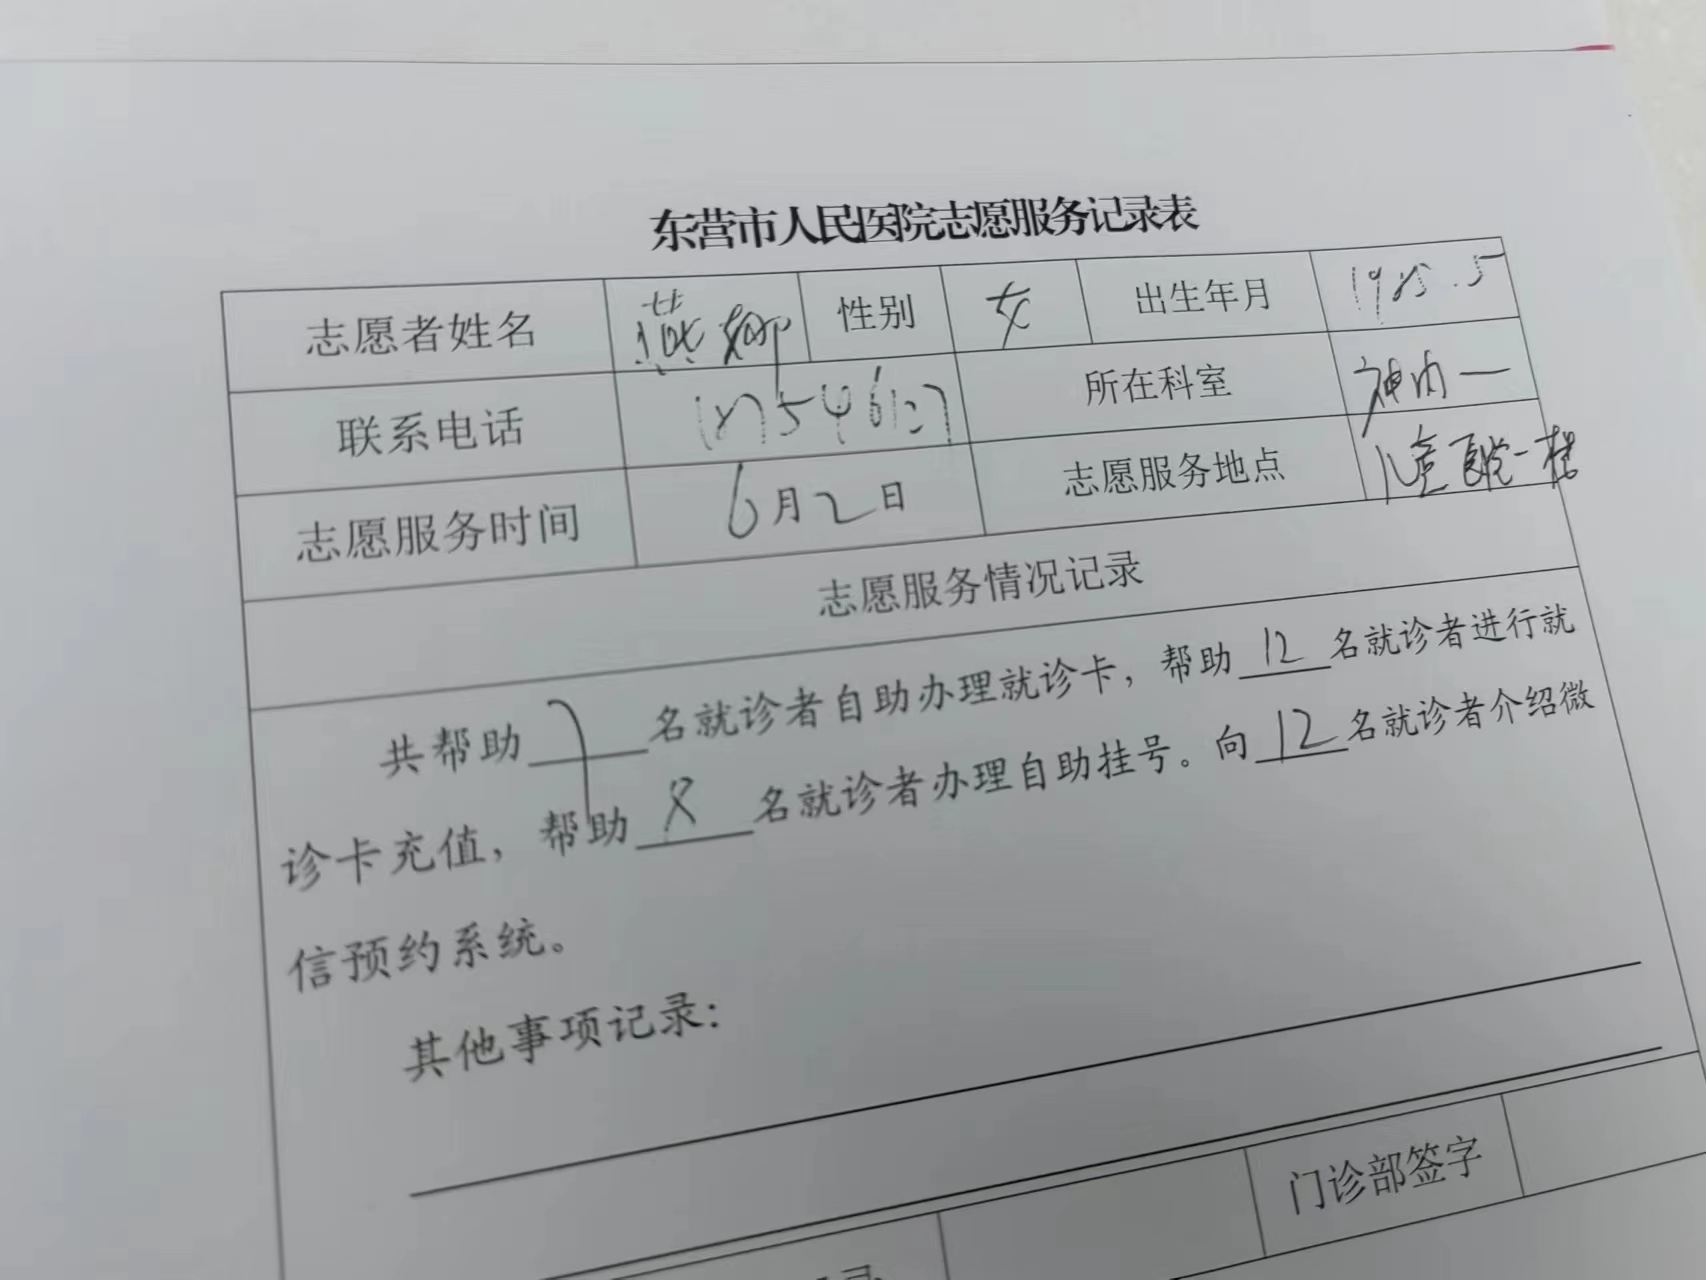 东营市人民医院志愿服务记录表
志愿者姓名 燕娜 性别 女 出生年月 1985.5
联系电话 所在科室 神内一
志愿服务时间 6月2日 志愿服务地点 儿童医院一楼
志愿服务情况记录
共帮助 7 名就诊者自助办理就诊卡，帮助 12 名就诊者进行就
诊卡充值，帮助 8 名就诊者办理自助挂号。向 12 名就诊者介绍微
信预约系统。
其他事项记录：
门诊部签字